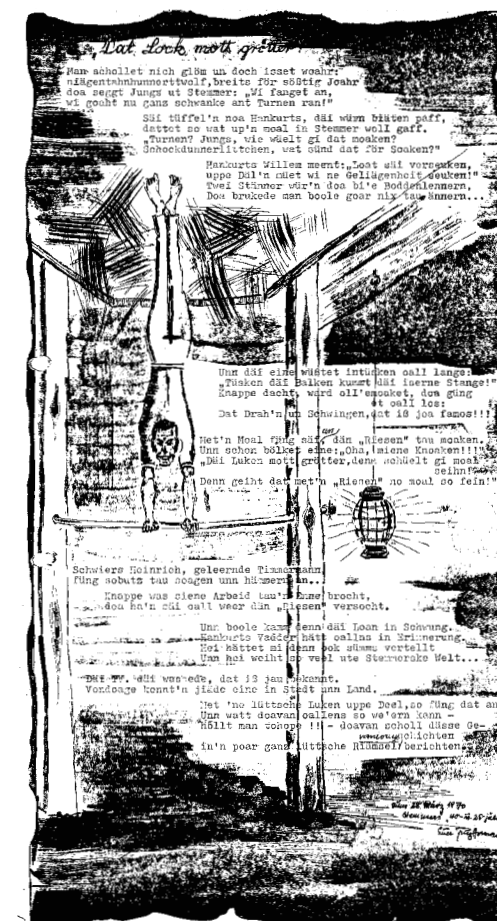 „Dat Lock mott grötter!"
Man schollet nich glöm un doch isset woahr:
niägentahnhunnorttwolf, breits för sößtig Joahr
doa seggt Jungs ut Stemmer: „Wi fanget an,
wi goaht nu ganz schwanke ant Turnen ran!"
Säi tüffel'n noa Hankurts, däi würn biäten paff,
dattet so wat up'n moal in Stemmer woll gaff.
„Turnen? Jungs, wie wüelt gi dat moaken?
Schockdunnerlittchen, wat sünd dat för Soaken?"
Hankurts Willem meent: „Loat säi verseuken,
uppe Däl'n müet wi ne Geliägenheit seuken!"
Twei Stänner wür'n doa bi'e Boddenlennern,
Doa brukede man boole goar nix tau ännern...
Unn däi eine wüßtet intüsken oall lange:
„Tüsken däi Balken kummt däi iserne Stange!"
Knappe dacht, ward oll'emoaket, dem güng
et oall los:
Dat Drah'n un Schwingen, dat iß joa famos!!!
Met'n Moal füng säi an dän „Riesen" tau moaken.
Unn schon bölket eine: „Oha, miene Knoaken!!!"
„Däi Luken mott grötter, denn schüelt gi moal
seihn!"
Denn geiht dat met'n „Riesen" no moal so fein!"
Schwiers Heinrich, geleernde Timmermann,
füng sobuts tau soagen unn hämmern an...
Knappe was siene Arbeid tau'n Enne brocht,
doa ha'n säi oall weer dän „Riesen" versocht.
Unn boole kamm denn däi Loan in Schwung.
Hankurts Vadder hätt oallns in Erinnerung.
Hei hättet mi denn ook sümms vertellt
Unn hei weiht so veel ute Stemmerske Welt...
Däi TV. däi wussede, dat iß jau bekannt.
Vondoage kennt'n jiäde eine in Stadt unn Land.
Met 'ne lüttsche Luken uppe Deel, so füng dat an
Unn watt doavan oallens so we'ern kann -
Höllt man tohope !! - doavan scholl düsse Ge-
schichten
in'n poar ganz lüttsche Riämsel berichten.
den 28. März 1970